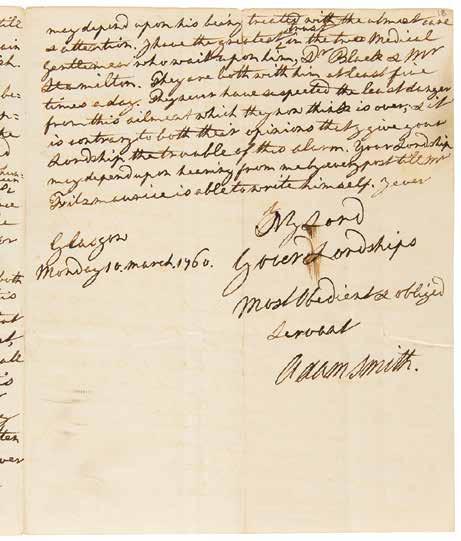 18
may depend upon his being treated with the utmost care
& attention. I have the greatest trust in the two Medical
Gentlemen who wait upon him, Dr Black & Mr
Hamilton. They are both with him at least five
times a day. They never have suspected the least danger
from this ailment which they now think is over, & it
is contrary to both their opinions that I give your
Lordship the trouble of this alarm. Your Lordship
may depend upon hearing from me by every post till Mr
Fitzmaurice is able to write himself. I ever
My Lord
Your Lordships
Glasgow
Monday 10. March, 1760.
Most Obedient & obliged
Servant
Adam Smith.